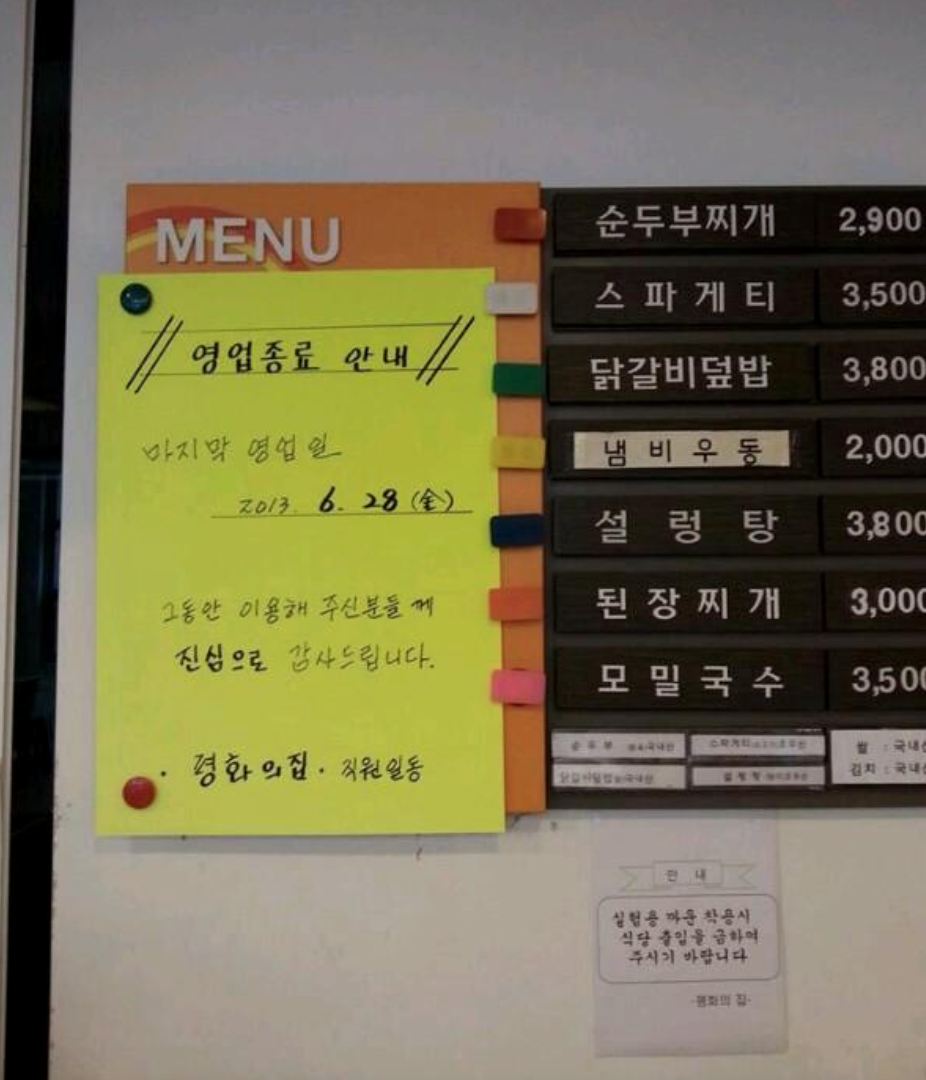 MENU
영업종료 안내
마지막 영업일
2013. 6. 28 (金)
그동안 이용해 주신분들께
진심으로 감사드립니다.
· 평화의집 · 직원일동
순두부찌개 2,900
스파게티 3,500
닭갈비덮밥 3,800
냄비우동 2,000
설렁탕 3,800
된장찌개 3,000
모밀국수 3,500
순두부 국내산
스파게티
쌀 : 국내산
닭갈비덮밥 국내산
설렁탕
김치 : 국내산
안 내
실험용 까운 착용시
식당 출입을 금하여
주시기 바랍니다
-평화의 집-